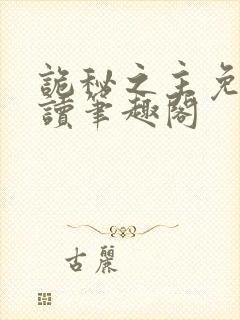 詭秘之主免
讀筆趣閣
古麗